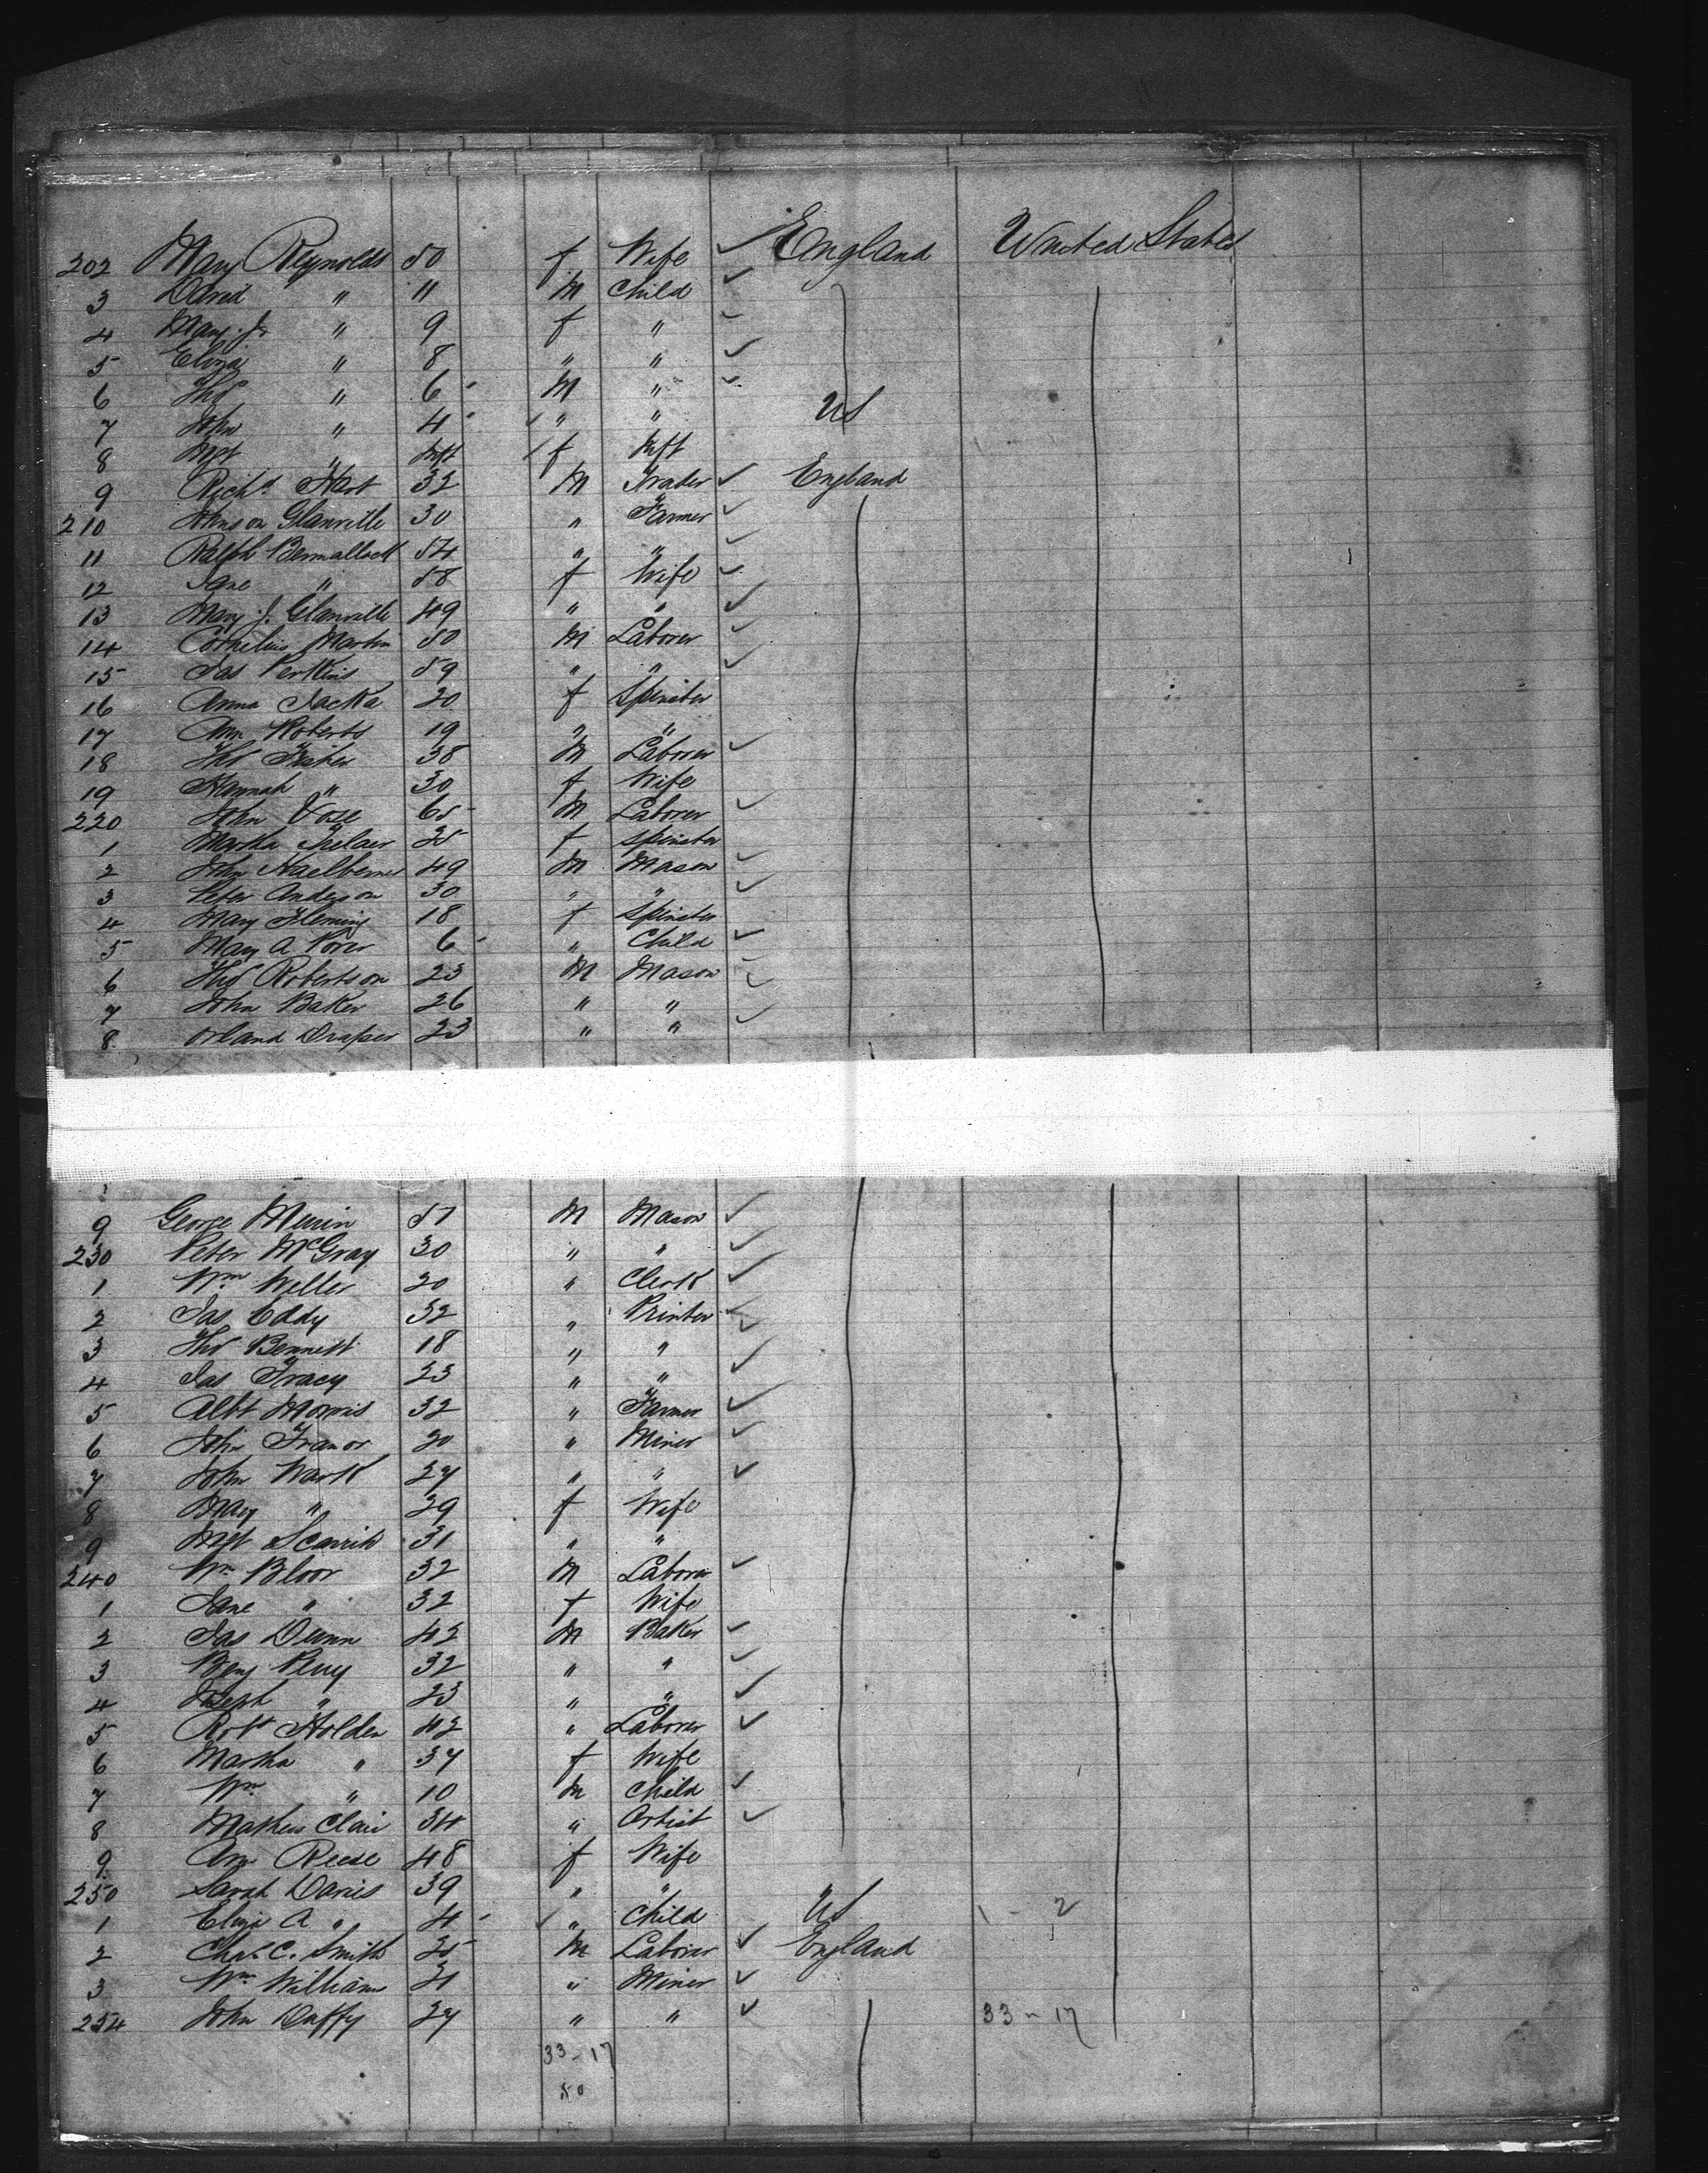 202 Mary Reynolds 50 f Wife ✓ England United States
3 David " 11 M Child ✓
4 Mary J. " 9 f "
5 Eliza " 8 " " ✓
6 Thos " 6 M " ✓
7 John " 4 " " US
8 Mgt " Inft f Inft
9 Richd Hart 32 M Trader ✓ England
210 Johnson Glanville 30 " Farmer ✓
11 Ralph 54 " " ✓
12 Jane " 58 f Wife ✓
13 Mary J. Glanville 49 " " ✓
14 Cornelius Martin 50 M Laborer ✓
15 Jas Perkins 59 " " ✓
16 Anna Jacka 20 f Spinster
17 Ann Roberts 19 " "
18 Thos Fisher 38 M Laborer ✓
19 Hannah " 30 f Wife
220 John Vose 65 M Laborer ✓
1 Martha 25 f Spinster
2 John 49 M Mason ✓
3 Peter Anderson 30 " " ✓
4 Mary Fleming 18 f Spinster
5 Mary A 6 " Child ✓
6 Thos Robertson 23 M Mason ✓
7 John Baker 26 " " ✓
8 Orland Draper 23 " " ✓
9 George 51 M Mason ✓
230 Peter McGray 30 " " ✓
1 Wm Weller 20 " Clerk ✓
2 Jas Eddy 32 " Printer ✓
3 Thos Bennett 18 " " ✓
4 Jas Tracy 23 " " ✓
5 Albt Morris 32 " Farmer ✓
6 John Tranor 20 " Miner ✓
7 John Wark 27 " " ✓
8 Mary " 29 f Wife
9 Mgt 31 " "
240 Wm Bloor 32 M Laborer ✓
1 Jane " 32 f Wife
2 Jas Dunn 42 M Baker ✓
3 Benj Perry 32 " " ✓
4 Joseph " 23 " " ✓
5 Robt Holden 42 " Laborer ✓
6 Martha " 37 f Wife
7 Wm " 10 M Child ✓
8 Mathew Clair 34 " Artist ✓
9 Ann Reese 48 f Wife
250 Sarah Davies 39 " "
1 Eliza A " 4 ✓ " Child US 1 - 2
2 Chas. C. Smith 25 M Laborer ✓ England
3 Wm Williams 21 " Miner ✓
254 John Duffy 27 " " ✓ 33 - 17
33 - 17
50